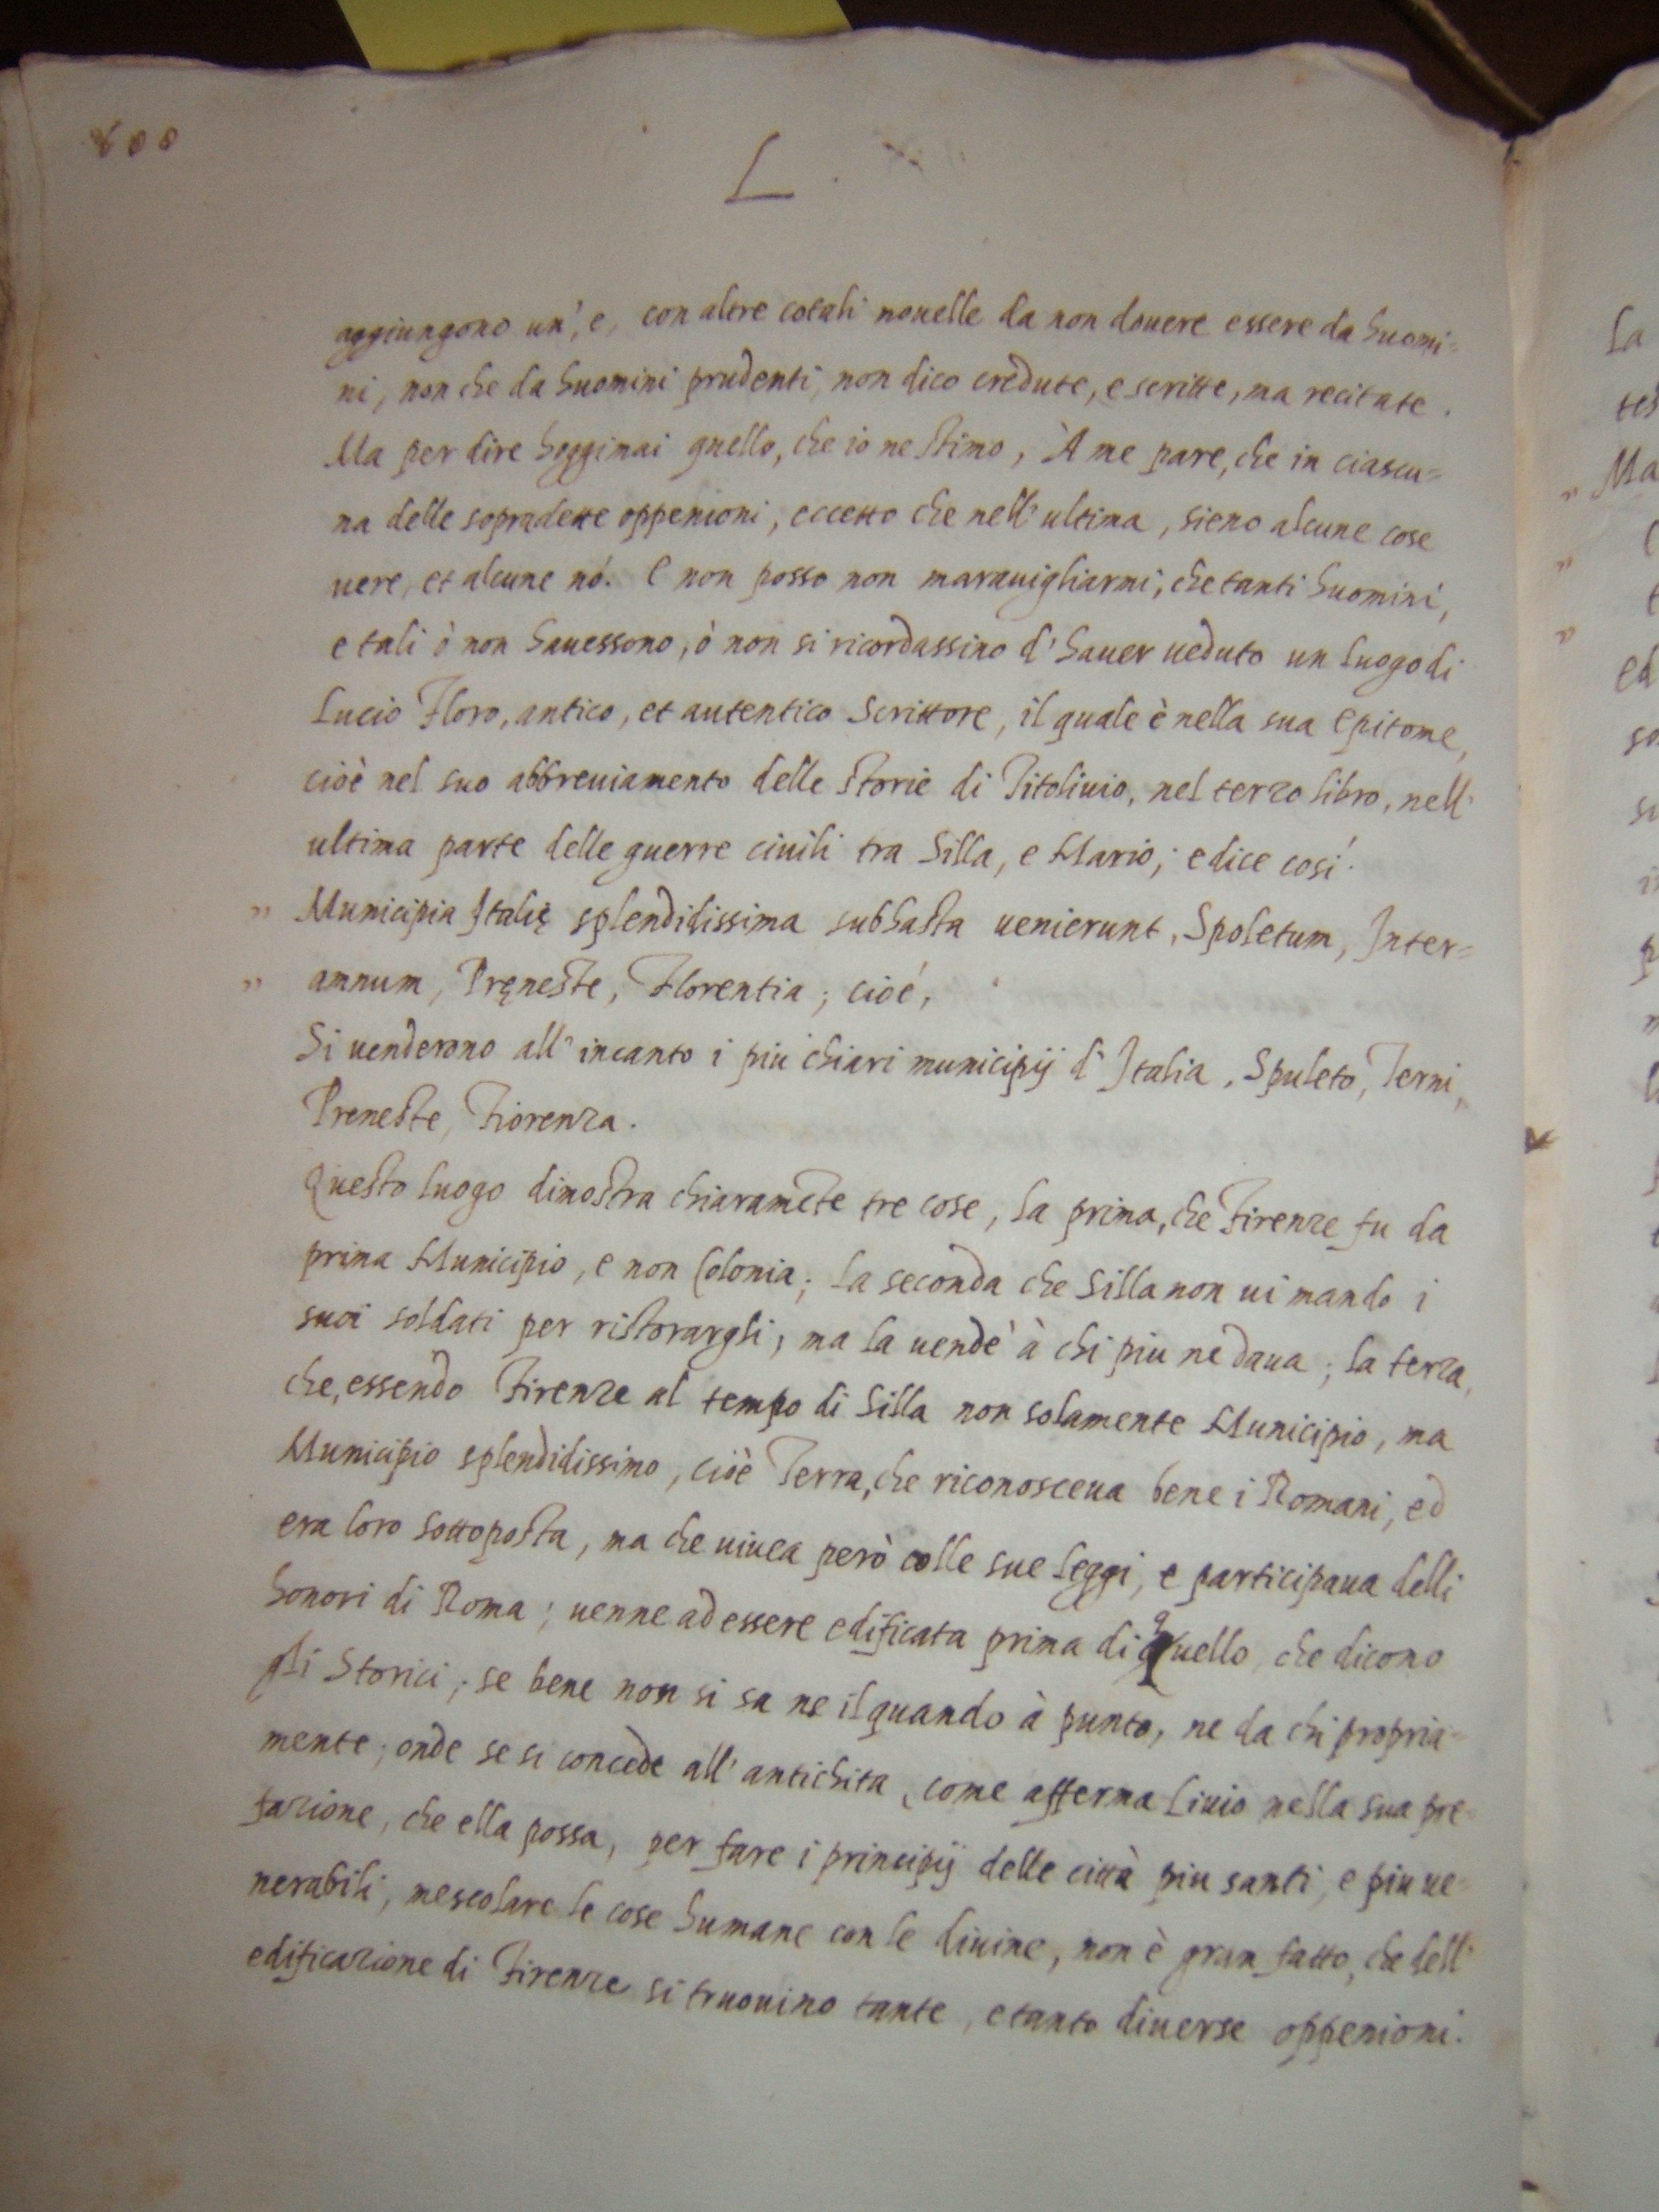 808
L
aggiungono un', e, con altre cotali nouelle da non douere essere da huomi=
ni, non che da huomini prudenti, non dico credute, e scritte, ma recitate.
Ma per dire hoggimai quello, che io ne stimo, À me pare, che in ciascu=
na delle sopradette oppenioni, eccetto che nell'ultima, sieno alcune cose
uere, et alcune nó. E non posso non marauigliarmi, che tanti huomini,
e tali ò non hauessono, ò non si ricordassino d'hauer ueduto un luogo di
Lucio Floro, antico, et autentico Scrittore, il quale è nella sua Epitome,
cioè nel suo abbreuiamento delle storie di Titoliuio, nel terzo libro, nell'
ultima parte delle guerre ciuili tra Silla, e Mario; e dice cosí.
" Municipia Italię splendidissima subhasta uenierunt, Spoletum, Inter=
" amnum, Pręneste, Florentia; cioé,
Si uenderono all'incanto i piu chiari municipij d'Italia, Spuleto, Terni,
Preneste, Fiorenza.
Questo luogo dimostra chiaramēte tre cose, la prima, che Firenze fu da
prima Municipio, e non Colonia; la seconda che Silla non ui mando i
suoi soldati per ristorargli, ma la uendè à chi piu ne daua; la terza,
che, essendo Firenze al tempo di Silla non solamente Municipio, ma
Municipio splendidissimo, cioè Terra, che riconosceua bene i Romani, ed
era loro sottoposta, ma che uiuea però colle sue leggi, e participaua delli
honori di Roma; uenne ad essere edificata prima di quello, che dicono
gli Storici; se bene non si sa ne il quando à punto, ne da chi propria=
mente; onde se si concede all'antichita, come afferma Liuio nella sua pre=
fazione, che ella possa, per fare i principij delle città piu santi, e piu ue=
nerabili, mescolare le cose humane con le diuine, non è gran fatto, che dell'
edificazione di Firenze si truouino tante, e tanto diuerse oppenioni.
La
Ma
"
"
"
ed